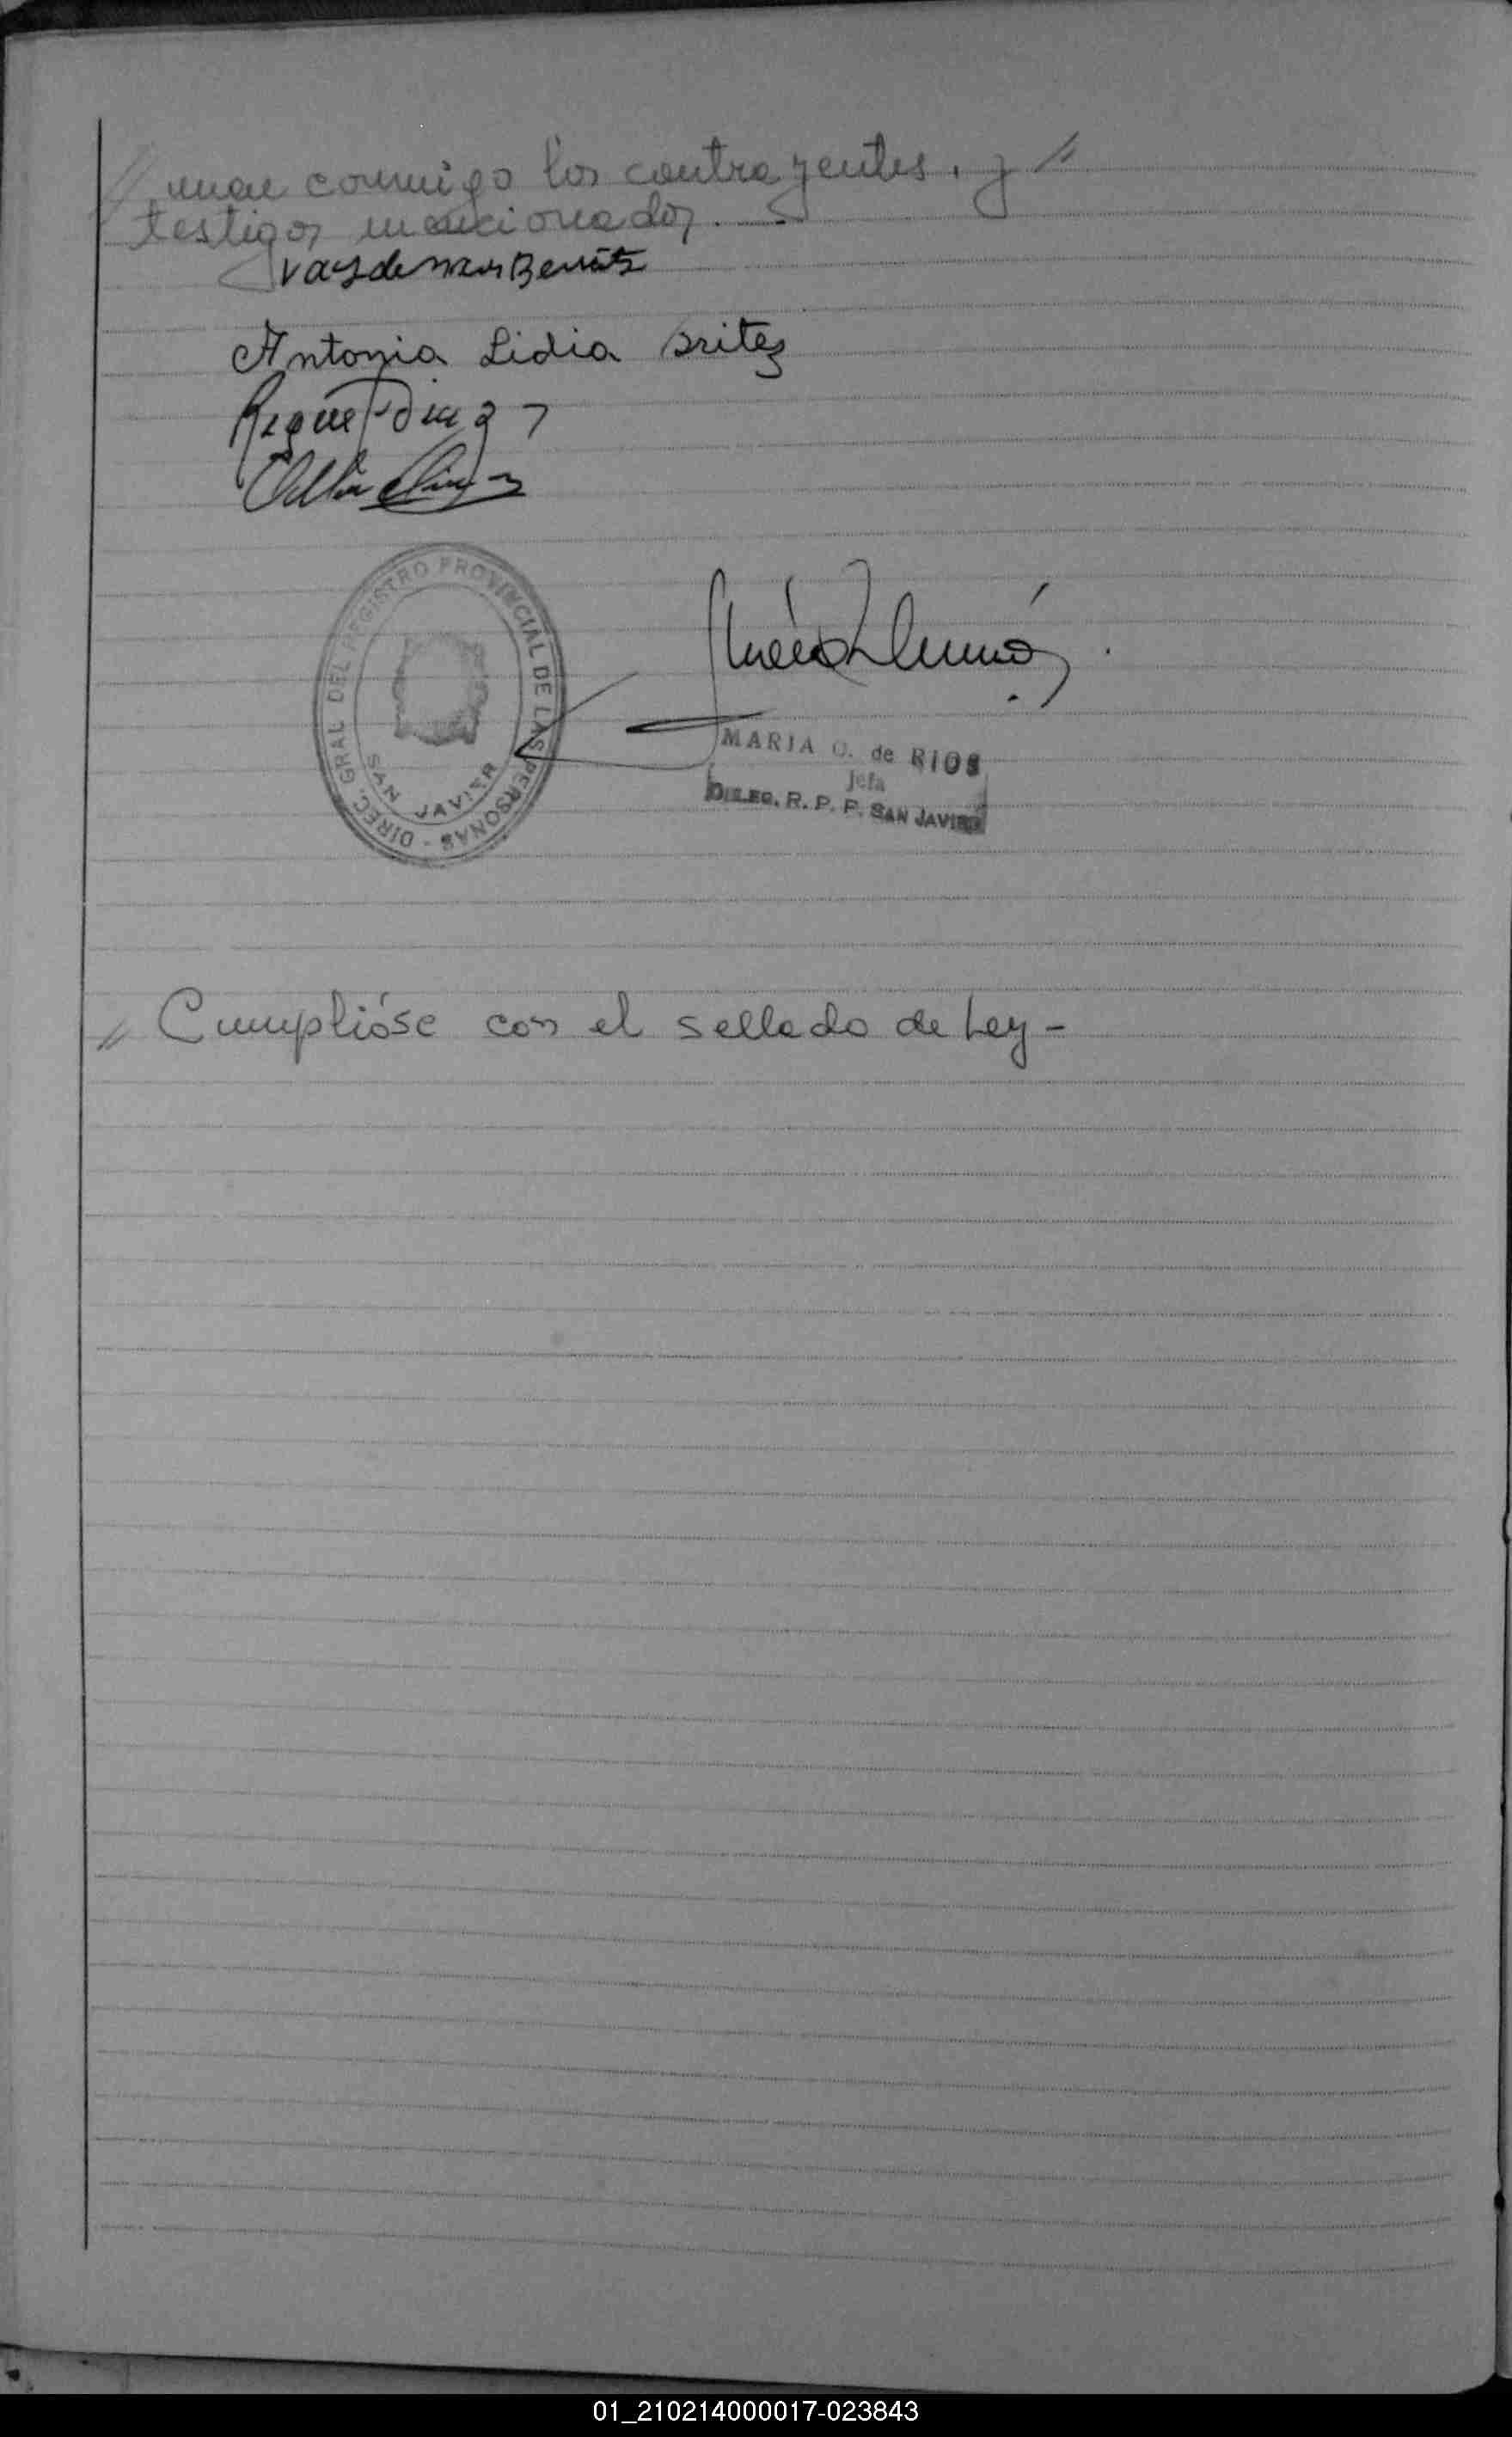 // man conmigo los contrayentes. y //
testigos mencionados. —
Antonia Lidia Britez
DIREC. GRAL DEL REGISTRO PROVINCIAL DE LAS PERSONAS -
SAN JAVIER
MARIA O. de RIOS
Jefa
DELEG. R. P. P. SAN JAVIER
// Cumplióse con el sellado de Ley -
01_210214000017-023843